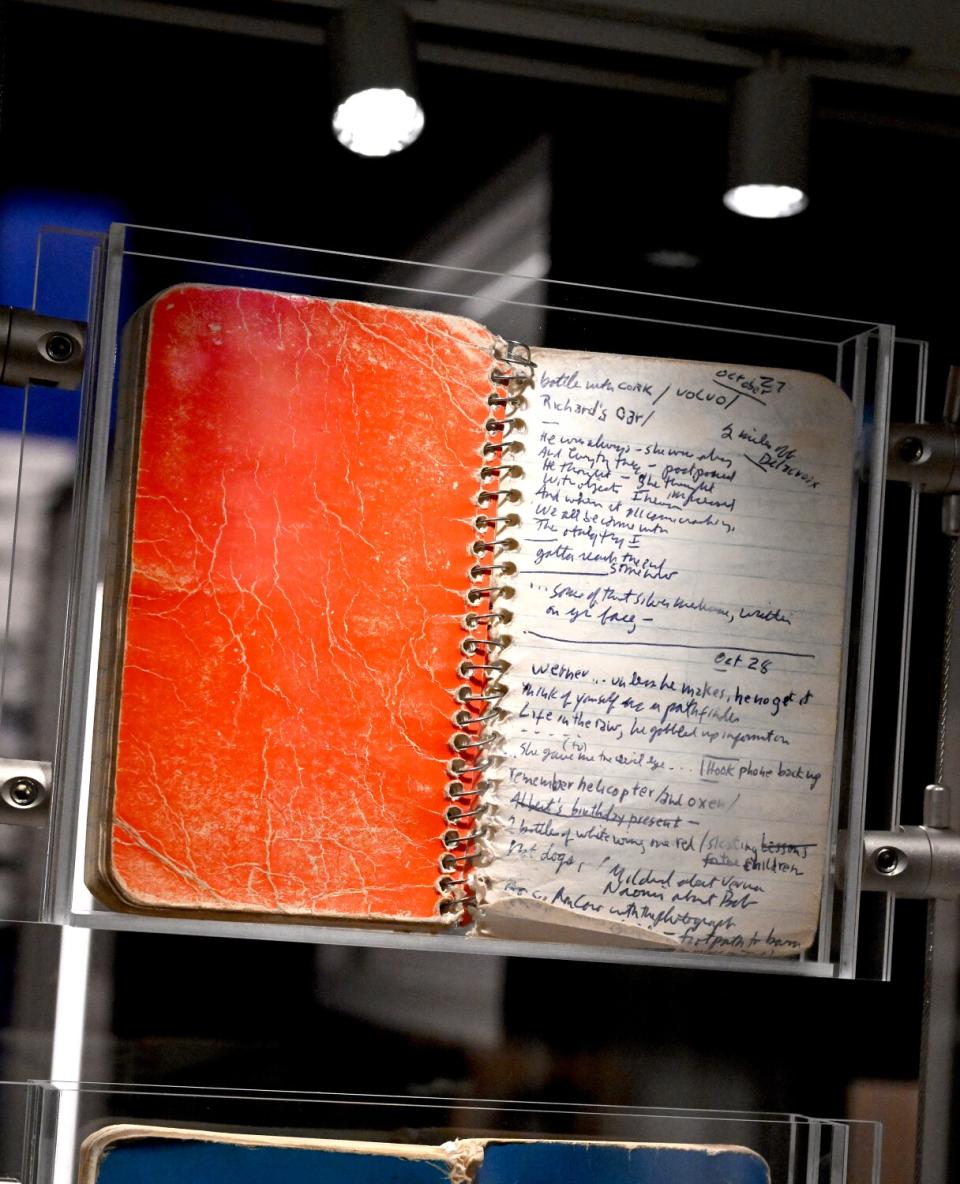 October 27
bottle with cork / VOLVO /
Richard's Car /
2 miles off
Delacroix
He was always - she was always
And - postponed
He thought - she thought
with objects I hear
And when it all comes crashing,
We all become
The I
gotta reach the end
somehow
... some of that silver, written
on yr face -
Oct 28
werner ... unless he makes, he no get it
think of yourself as a pathfinder
Life in the raw, he gobbled up information
(to)
... she gave me the evil eye ... / Hook phone back up
remember helicopter / and oxen /
Albert's birthday present -
2 bottles of white wine, one red / skating Lessons
for the children
Hot dogs, / Mildred about Verna
Naomi about Bob
with the photograph
- footpath to barn